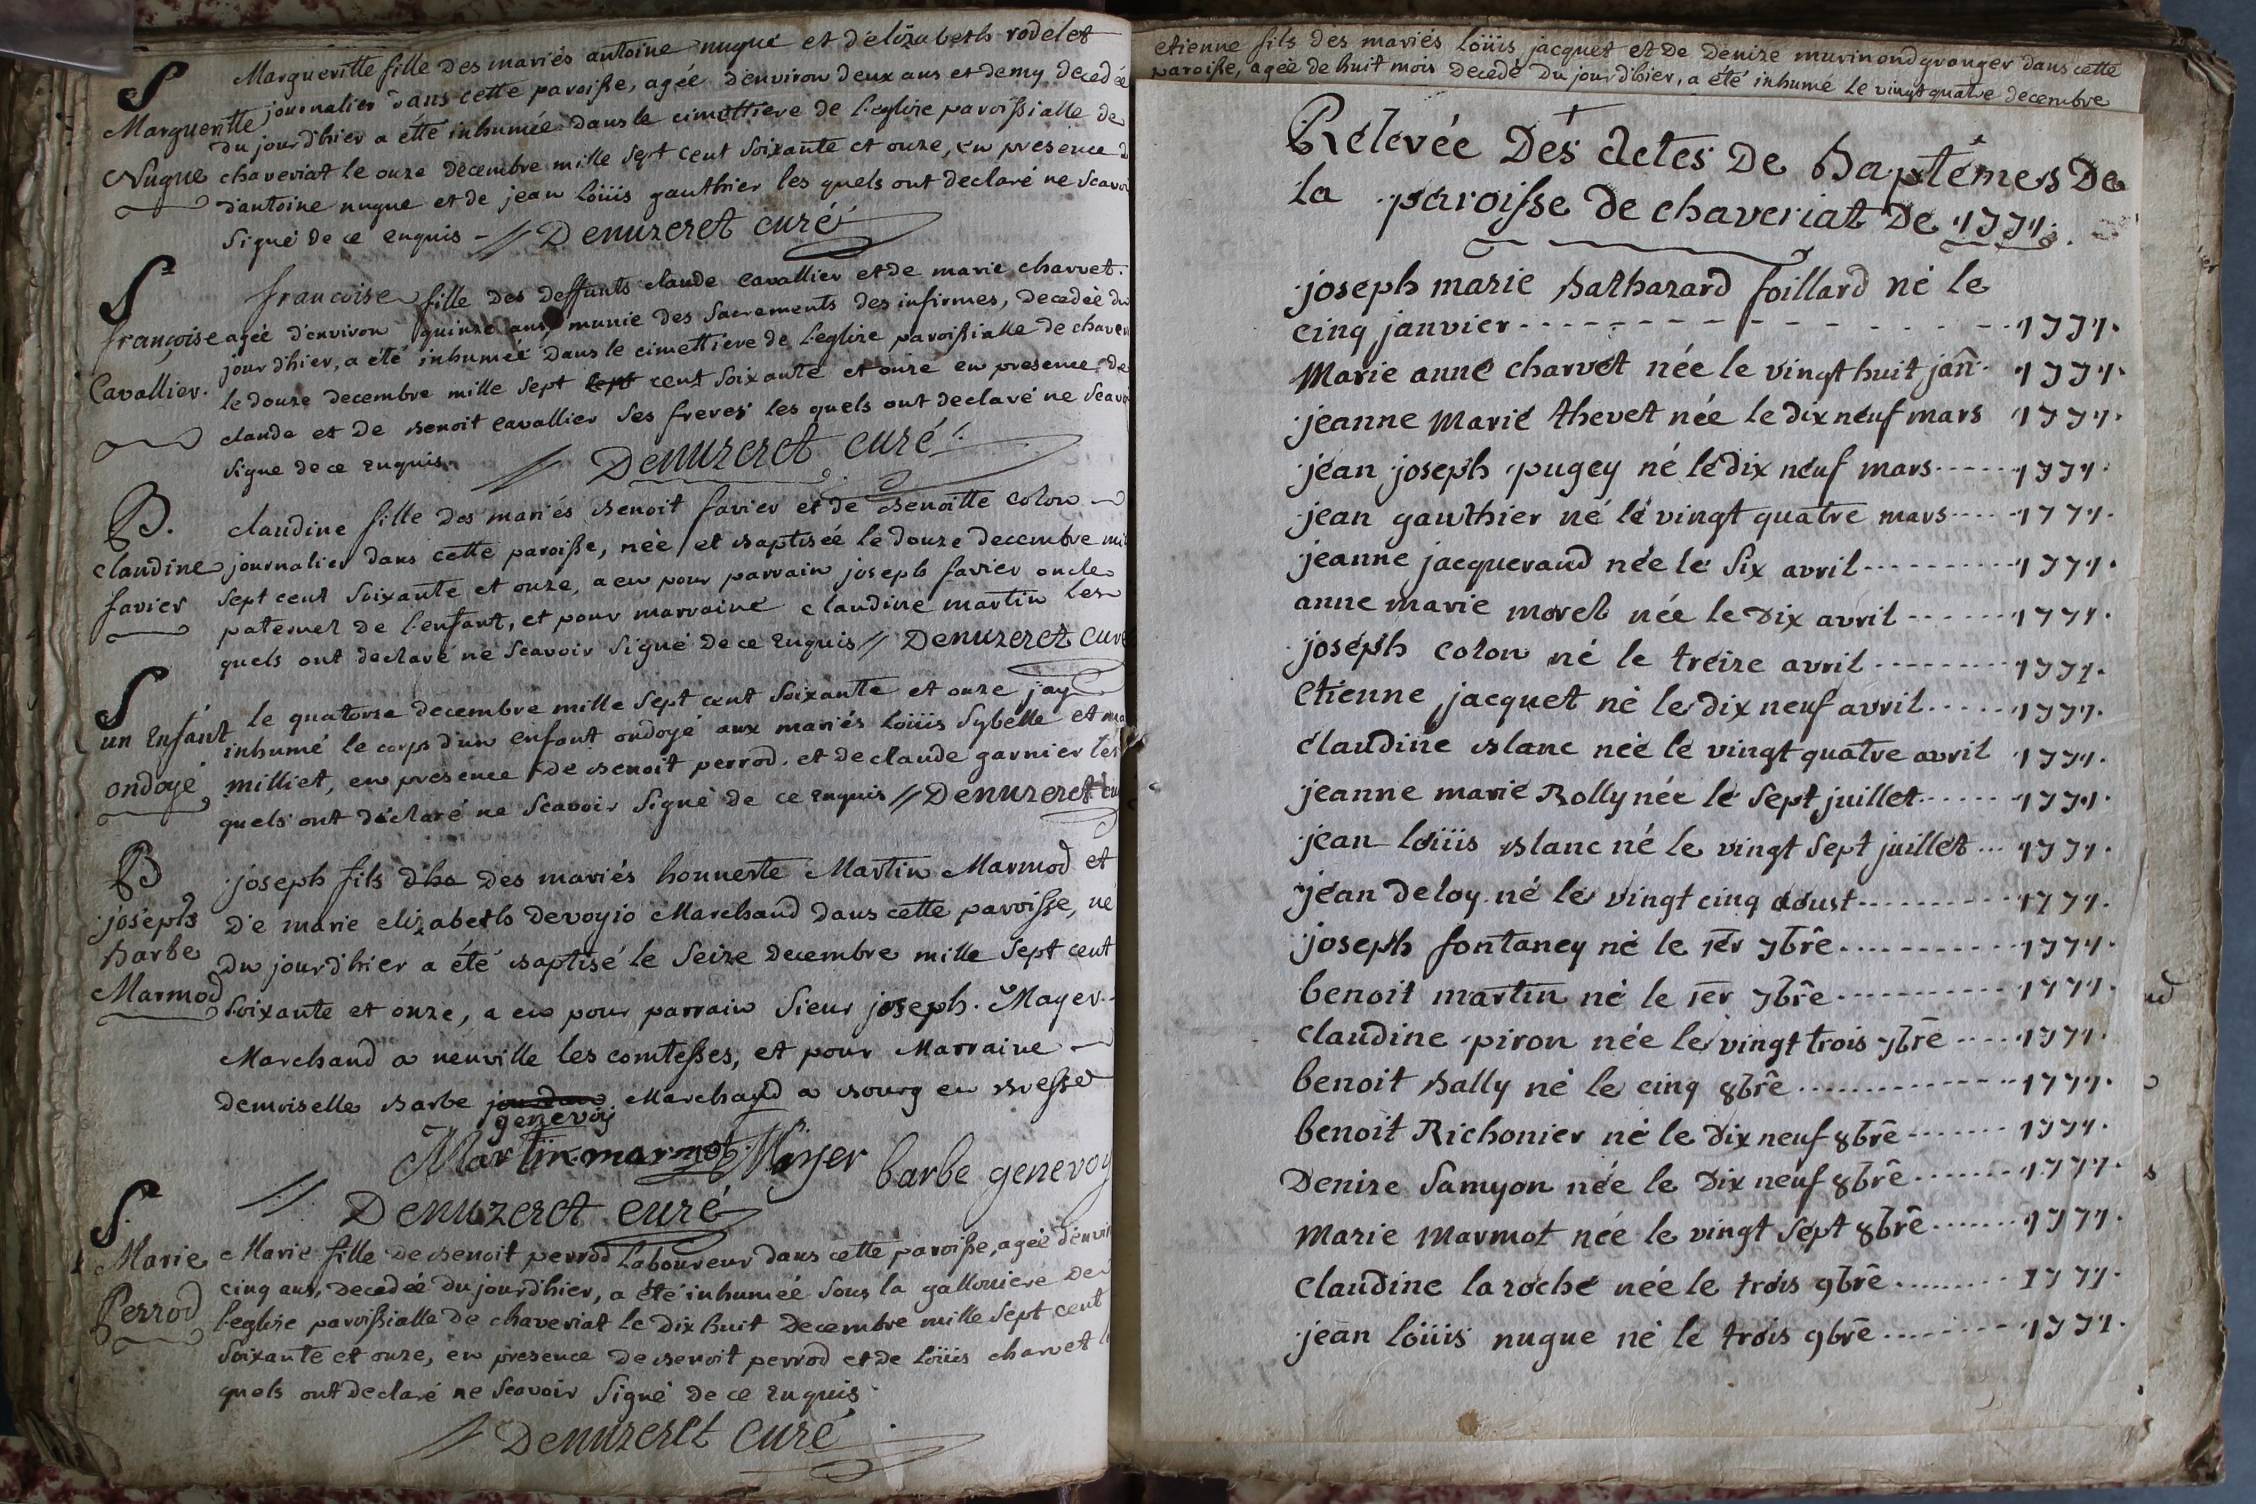 S
Margueritte
Nugue
Margueritte fille des mariés antoine nugue et d'elizabeth rodelet
journalier dans cette paroisse, agée d'environ deux ans et demy decedée
du jour d'hier a été inhumée dans le cimettiere de l'eglize paroissialle de
chaveriat le onze decembre mille sept cent soixante et onze, en presence d
d'antoine nugue et de jean loüis gauthier les quels ont declaré ne scavoi
signé de ce enquis // Denuzeret curé
S
françoise
Cavallier.
francoise fille des deffunts claude cavallier et de marie charvet.
agée d'environ quinze ans, munie des sacrements des infirmes, decedée du
jour d'hier, a été inhumée dans le cimettiere de l'eglize paroissialle de chaver
le douze decembre mille sept sept cent soixante et onze en presence de
claude et de benoit cavallier ses freres les quels ont declaré ne scavoi
signe de ce enquis. // Denuzeret curé.
B.
claudine
favier
claudine fille des mariés benoit favier et de benoitte colon
journalier dans cette paroisse, née et baptisée le douze decembre mil
sept cent soixante et onze, a eu pour parrain joseph favier oncle
paternel de l'enfant, et pour marraine claudine martin les
quels ont declaré ne scavoir signé de ce enquis // Denuzeret curé
S
un Enfant
ondoyé
le quatorze decembre mille sept cent soixante et onze jay
inhumé le corps d'un enfant ondoyé aux mariés loüis sybelle et ma
milliet, en presence de benoit perrod. et de claude garnier les
quels ont déclaré ne scavoir signé de ce enquis // Denuzeret cu
B
joseph
barbe
Marmod
joseph fils d'ho des mariés honnerte Martin Marmod et
de marie elizabeth devoyio Marchand dans cette paroisse, né
du jour d'hier a été baptisé le seize decembre mille sept cent
soixante et onze, a eu pour parrain sieur joseph. Mayer
Marchand a neuville les comtesses, et pour Marraine
demoiselle barbe jourdan Marchand a bourg en bresse
genevoy
Martin marmot Mayer barbe genevoy
// Denuzeret curé
S.
Marie
Perrod
Marie fille de benoit perrod laboureur dans cette paroisse, agée d'envir
cinq ans, decedée du jour d'hier, a été inhumée sous la gallouiere de
l'eglize paroissialle de chaveriat le dix huit decembre mille sept cent
soixante et onze, en presence de benoit perrod et de loüis charvet l
quels ont declaré ne scavoir signé de ce enquis.
// Denuzeret curé
etienne fils des mariés loüis jacquet et de denize murinond granger dans cette
paroisse, agée de huit mois decedé du jour d'hier, a été inhumé le vingt quatre decembre
Relevée Des actes De Baptêmes De
la paroisse de chaveriat De 1771.
joseph marie balthazard foillard né le
cinq janvier 1771.
Marie anne charvet née le vingt huit jan̄. 1771.
jeanne Marie thevet née le dix neuf mars 1771.
jean joseph pugey né le dix neuf mars 1771.
jean gauthier né le vingt quatre mars 1771.
jeanne jacqueraud née le six avril 1771.
anne marie morel née le dix avril 1771.
joseph colon né le treize avril 1771.
Etienne jacquet né le dix neuf avril 1771.
claudine blanc née le vingt quatre avril 1771.
jeanne marie Rolly née le sept juillet 1771.
jean loüis blanc né le vingt sept juillet 1771.
jean deloy né le vingt cinq aoust 1771.
joseph fontaney né le 1er 7bre 1771.
benoit martin né le 1er 7bre 1771.
claudine piron née le vingt trois 7bre 1771.
benoit bally né le cinq 8bre 1771.
benoit Richonier né le dix neuf 8bre 1771.
Denize Samyon née le dix neuf 8bre 1771.
Marie Marmot née le vingt sept 8bre 1771.
claudine laroche née le trois 9bre 1771.
jean loüis nugue né le trois 9bre 1771.